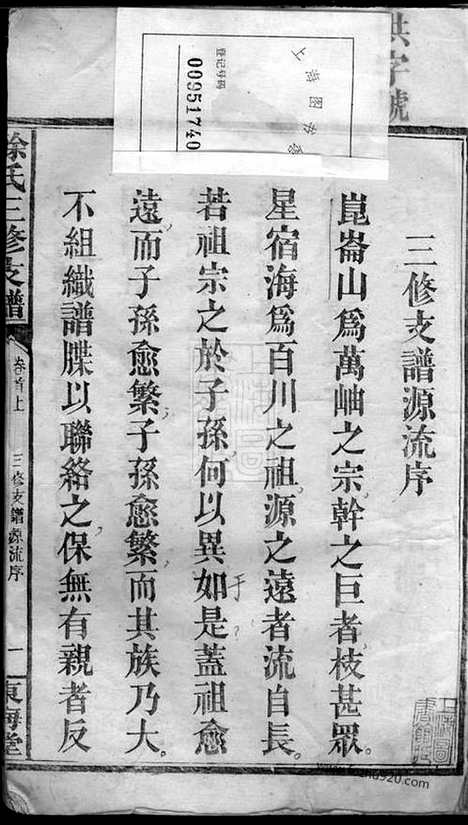 洪字號
上海图书馆
登记号码
00951740
三修支譜源流序
崑崙山爲萬岫之宗幹之巨者枝甚眾。
星宿海爲百川之祖源之遠者流自長。
若祖宗之於子孫何以異如是蓋祖愈
于?
遠而子孫愈繁子孫愈繁而其族乃大。
不組織譜牒以聯絡之保無有親者反
徐氏三修支譜
卷首上
三修支譜源流序
一
東海堂